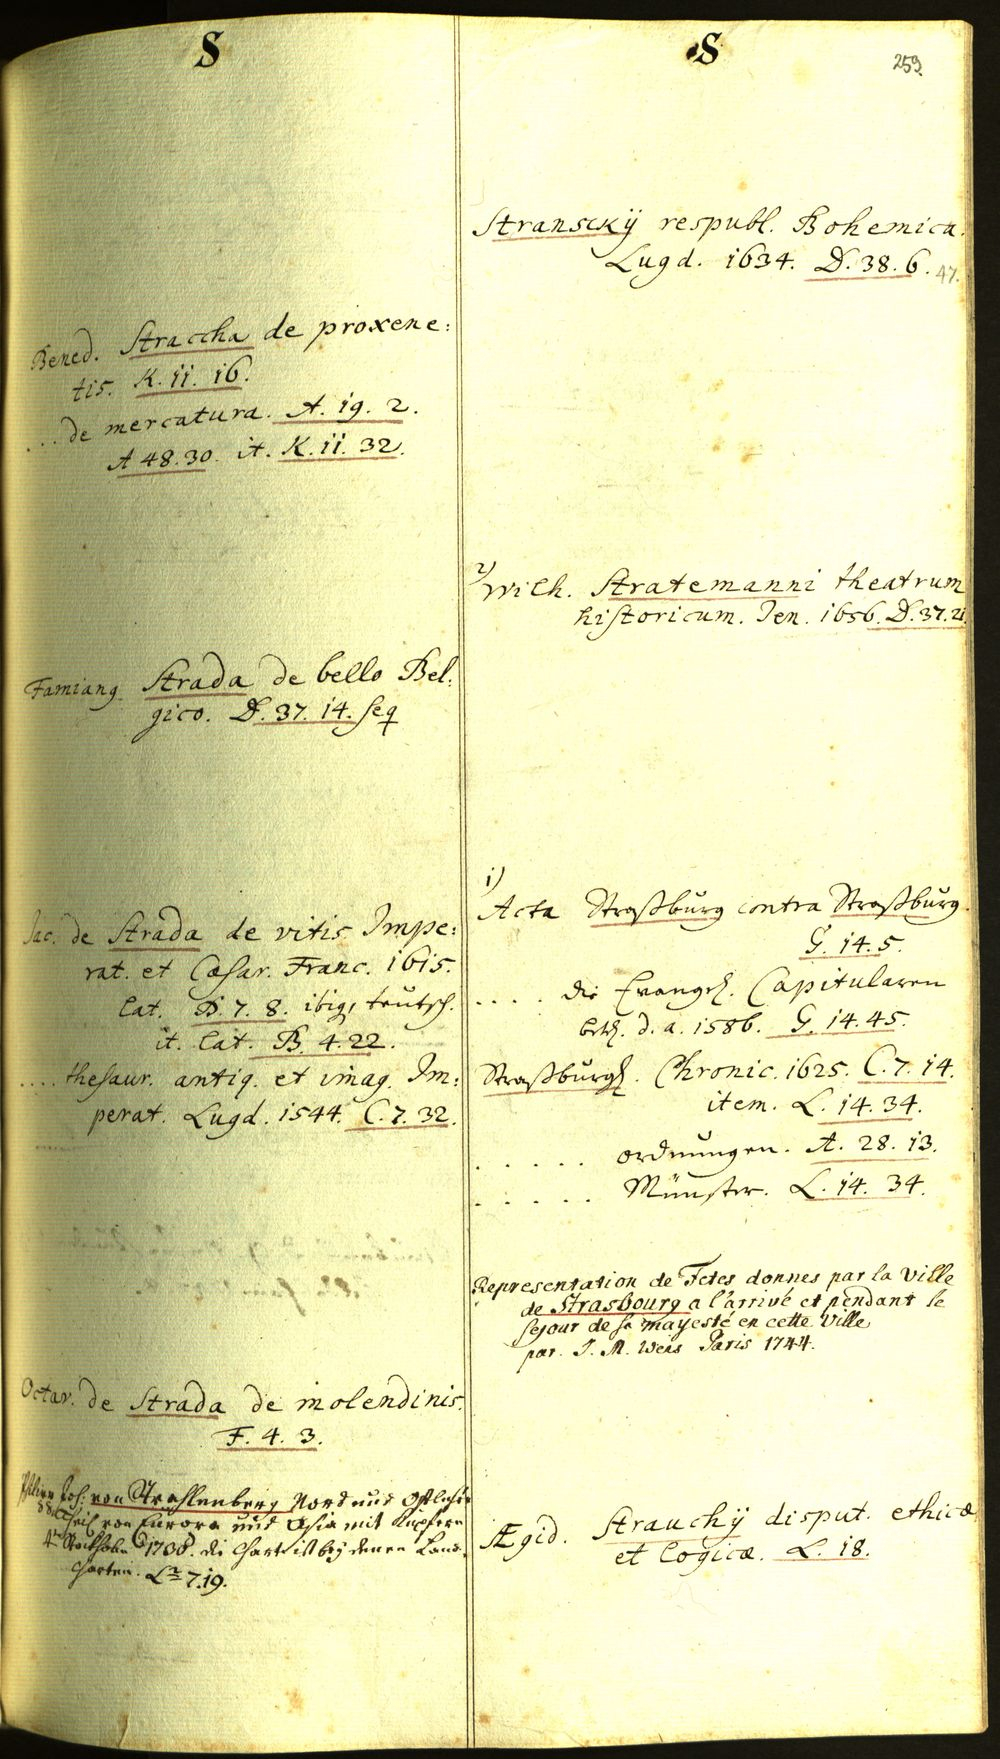 S
Bened. Straccha de proxene:
tis. K. 11. 16.
... de mercatura. A. 19. 2.
A 48. 30. it. K. 11. 32.
Famiang. Strada de bello Bel:
gico. D. 37. 14. seq
Jac. de Strada de vitis Impe:
rat. et Cæsar. Franc. 1615.
lat. B. 7. 8. ibiq, teutsch.
it. lat. B. 4. 22.
.... thesaur. antiq. et imag. Im:
perat. Lugd. 1544. C. 7. 32.
Octav. de Strada de molendinis.
F. 4. 3.
Joh: von Strahlenberg Nord und Ostlicher
Theil von Europa und Asia mit Kupfern
4to Stockholm 1730. die Charte ist bey denen Land-
Charten. 7. 19.
S
259.
Stransckÿ respubl. Bohemica.
Lugd. 1634. D. 38. 6. 47.
2) Wilh. Stratemanni theatrum
historicum. Jen. 1656. D. 37. 21.
1)
Acta Straßburg contra Straßburg.
G. 14. 5.
.... die Evangel. Capitularen
betr. d. a. 1586. G. 14. 45.
Straßburgl. Chronic. 1625. C. 7. 14.
item. L. 14. 34.
..... ordnungen. A. 28. 13.
..... Münster. L. 14. 34.
Representation de Fetes donnes par la Ville
de Strasbourg a l'arrivé et pendant le
sejour de sa mayesté en cette Ville
par. J. M. Weis Paris 1744.
Ægid. Strauchÿ disput. ethicæ
et logicæ. L. 18.